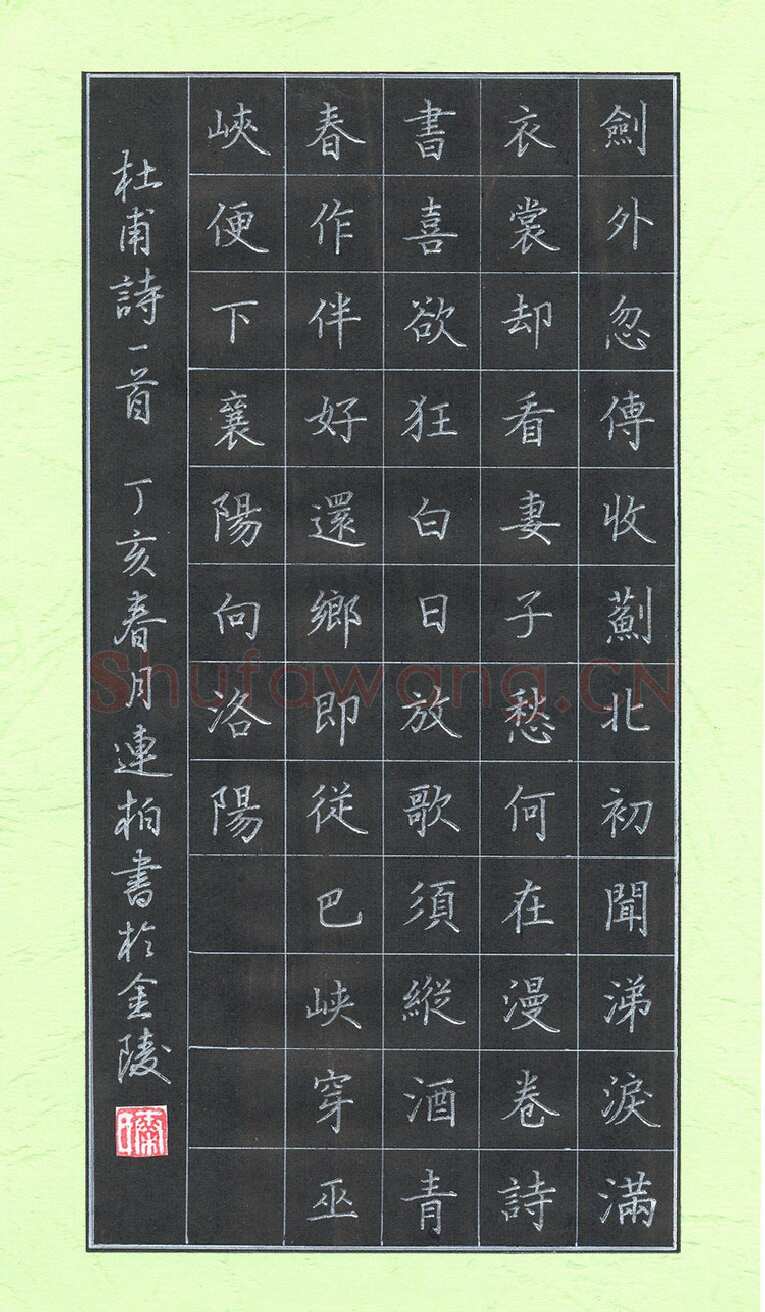 劍外忽傳收薊北初聞涕淚滿
衣裳却看妻子愁何在漫卷詩
書喜欲狂白日放歌須縱酒青
春作伴好還鄉即從巴峽穿巫
峽便下襄陽向洛陽
杜甫詩一首 丁亥春月連柏書於金陵
Shufawang.CN